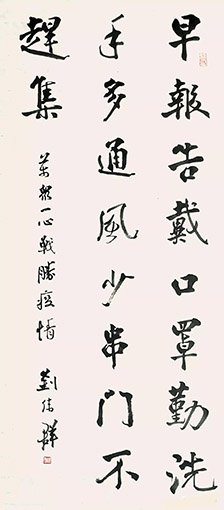 早報告戴口罩勤洗
手多通風少串门不
趕集
萬眾一心戰勝疫情
劉偉群